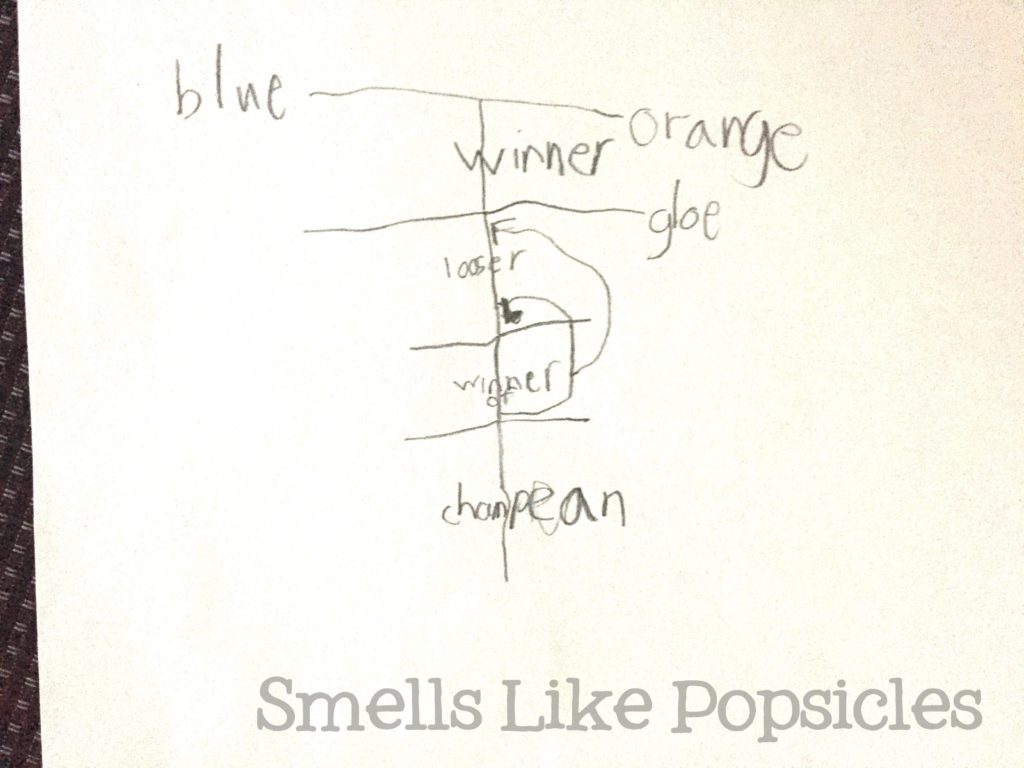 blue orange
winner
gloe
looser
winner
of
champean
Smells Like Popsicles